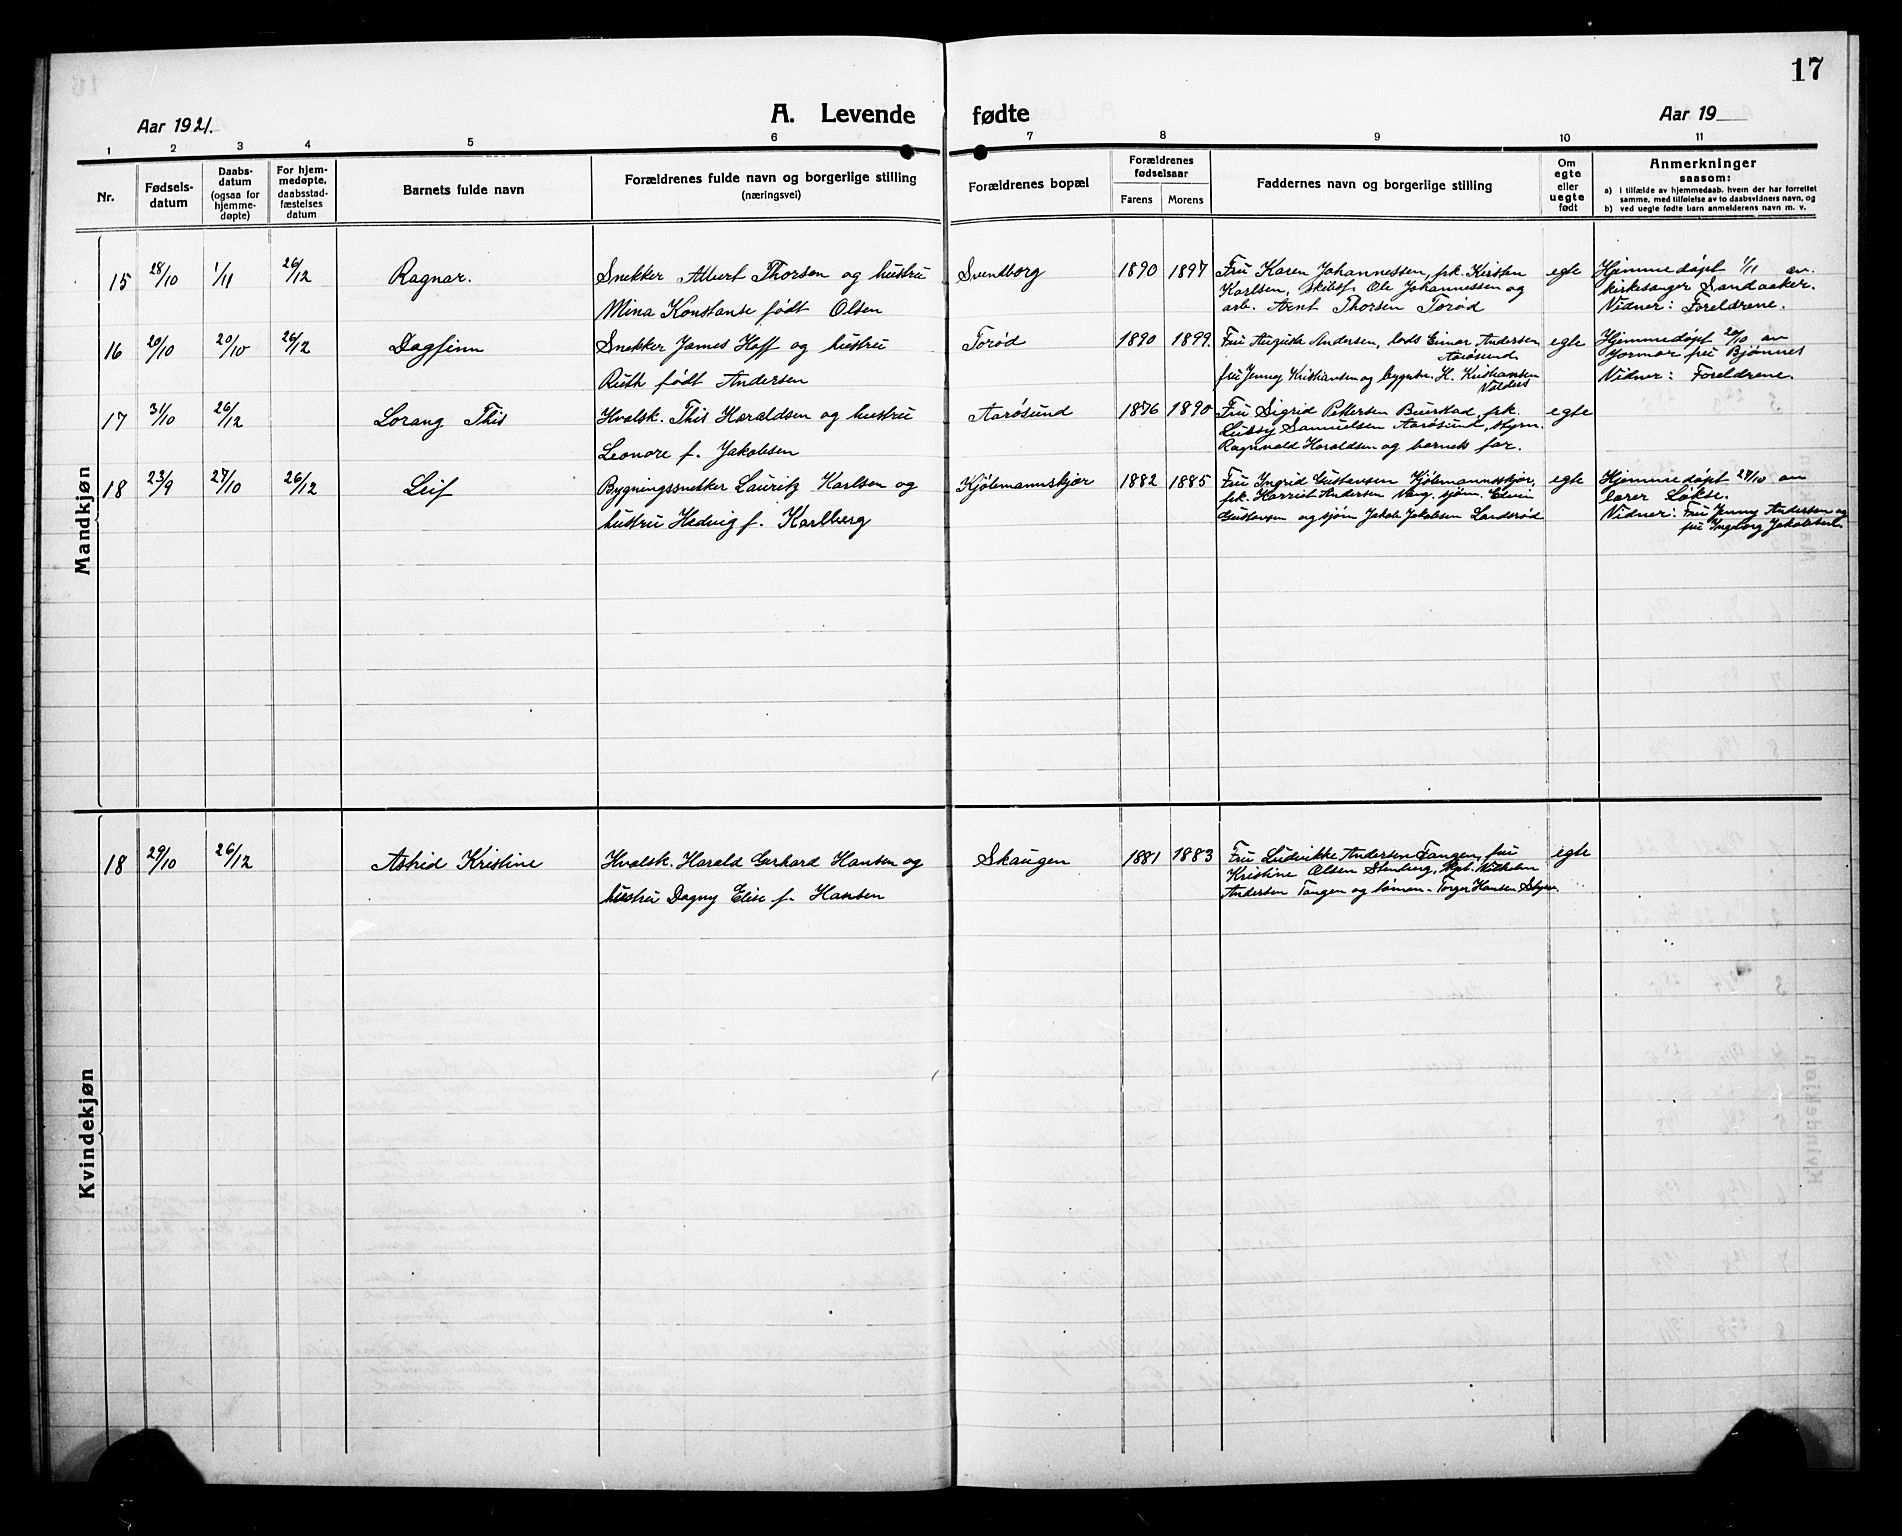 17
A. Levende fødte
Aar 1921.
Aar 19
1 2 3 4 5 6 7 8 9 10 11
Nr.
Fødsels-
datum
Daabs-
datum
(ogsaa for
hjemme-
døpte)
For hjem-
medøpte,
daabsstad-
fæstelses
datum
Barnets fulde navn
Forældrenes fulde navn og borgerlige stilling
(næringsvei)
Forældrenes bopæl
Forældrenes
fødselsaar
Farens Morens
Faddernes navn og borgerlige stilling
Om
egte
eller
uegte
født
Anmerkninger
saasom:
a) i tilfælde av hjemmedaab, hvem der har forrettet
samme, med tilføielse av to daabsvidners navn, og
b) ved uegte fødte barn anmelderens navn m. v.
Mandkjøn
15 28/10 1/11 26/12 Ragnar.
Snekker Albert Thorsen og hustru
Mina Konstanse født Olsen
Svendborg 1890 1897
Fru Karen Johannessen, frk. Kirsten
Karlsen, skibst. Ole Johannessen og
arb. Arnt Thorsen Torød
egte
Hjemmedøpt 1/11 av
kirkesanger Sandaaker.
Vidner: Foreldrene.
16 20/10 20/10 26/12 Dagfinn
Snekker James Hoff og hustru
Ruth født Andersen
Torød 1890 1899.
Fru Augusta Andersen, lods Einar Andersen
Aarøsund
fru Jenny Kristiansen og bygm. H. Kristiansen
egte
Hjemmedøpt 20/10 av
jormor fru Bjønnes
Vidner: Foreldrene.
17 31/10 26/12 Lorang This
Hvalsk. This Haraldsen og hustru
Leonore f. Jakobsen
Aarøsund 1876 1890
Fru Sigrid Pettersen Buerstad, frk.
Samuelsen Aarøsund, styrm.
Ragnvald Haraldsen og barnets far.
egte
18 23/9 27/10 26/12 Leif
Bygningssnekker Lauritz Karlsen og
hustru Hedvig f. Karlberg
Kjøbmannskjær 1882 1885
Fru Ingrid Gustavsen Kjøbmannsskjær,
frk. Harriet Andersen sjøm. Edvin
Gustavsen og sjøm Jakob Jakobsen Landsrød
egte
Hjemmedøpt 27/10 av
lærer Løkse.
Vidner: Fru Jenny Andersen og
fru Ingeborg Jakobsen.
Kvindekjøn
18 29/10 26/12 Astrid Kristine
Hvalsk. Harald Gerhard Hansen og
hustru Dagny Elise f. Hansen
Skaugen 1881 1883
Fru Ludvikke Andersen Tangen, fru
Kristine Olsen Stenberg, Vilhelm
Andersen Tangen og tømm. Torger Hansen
egte